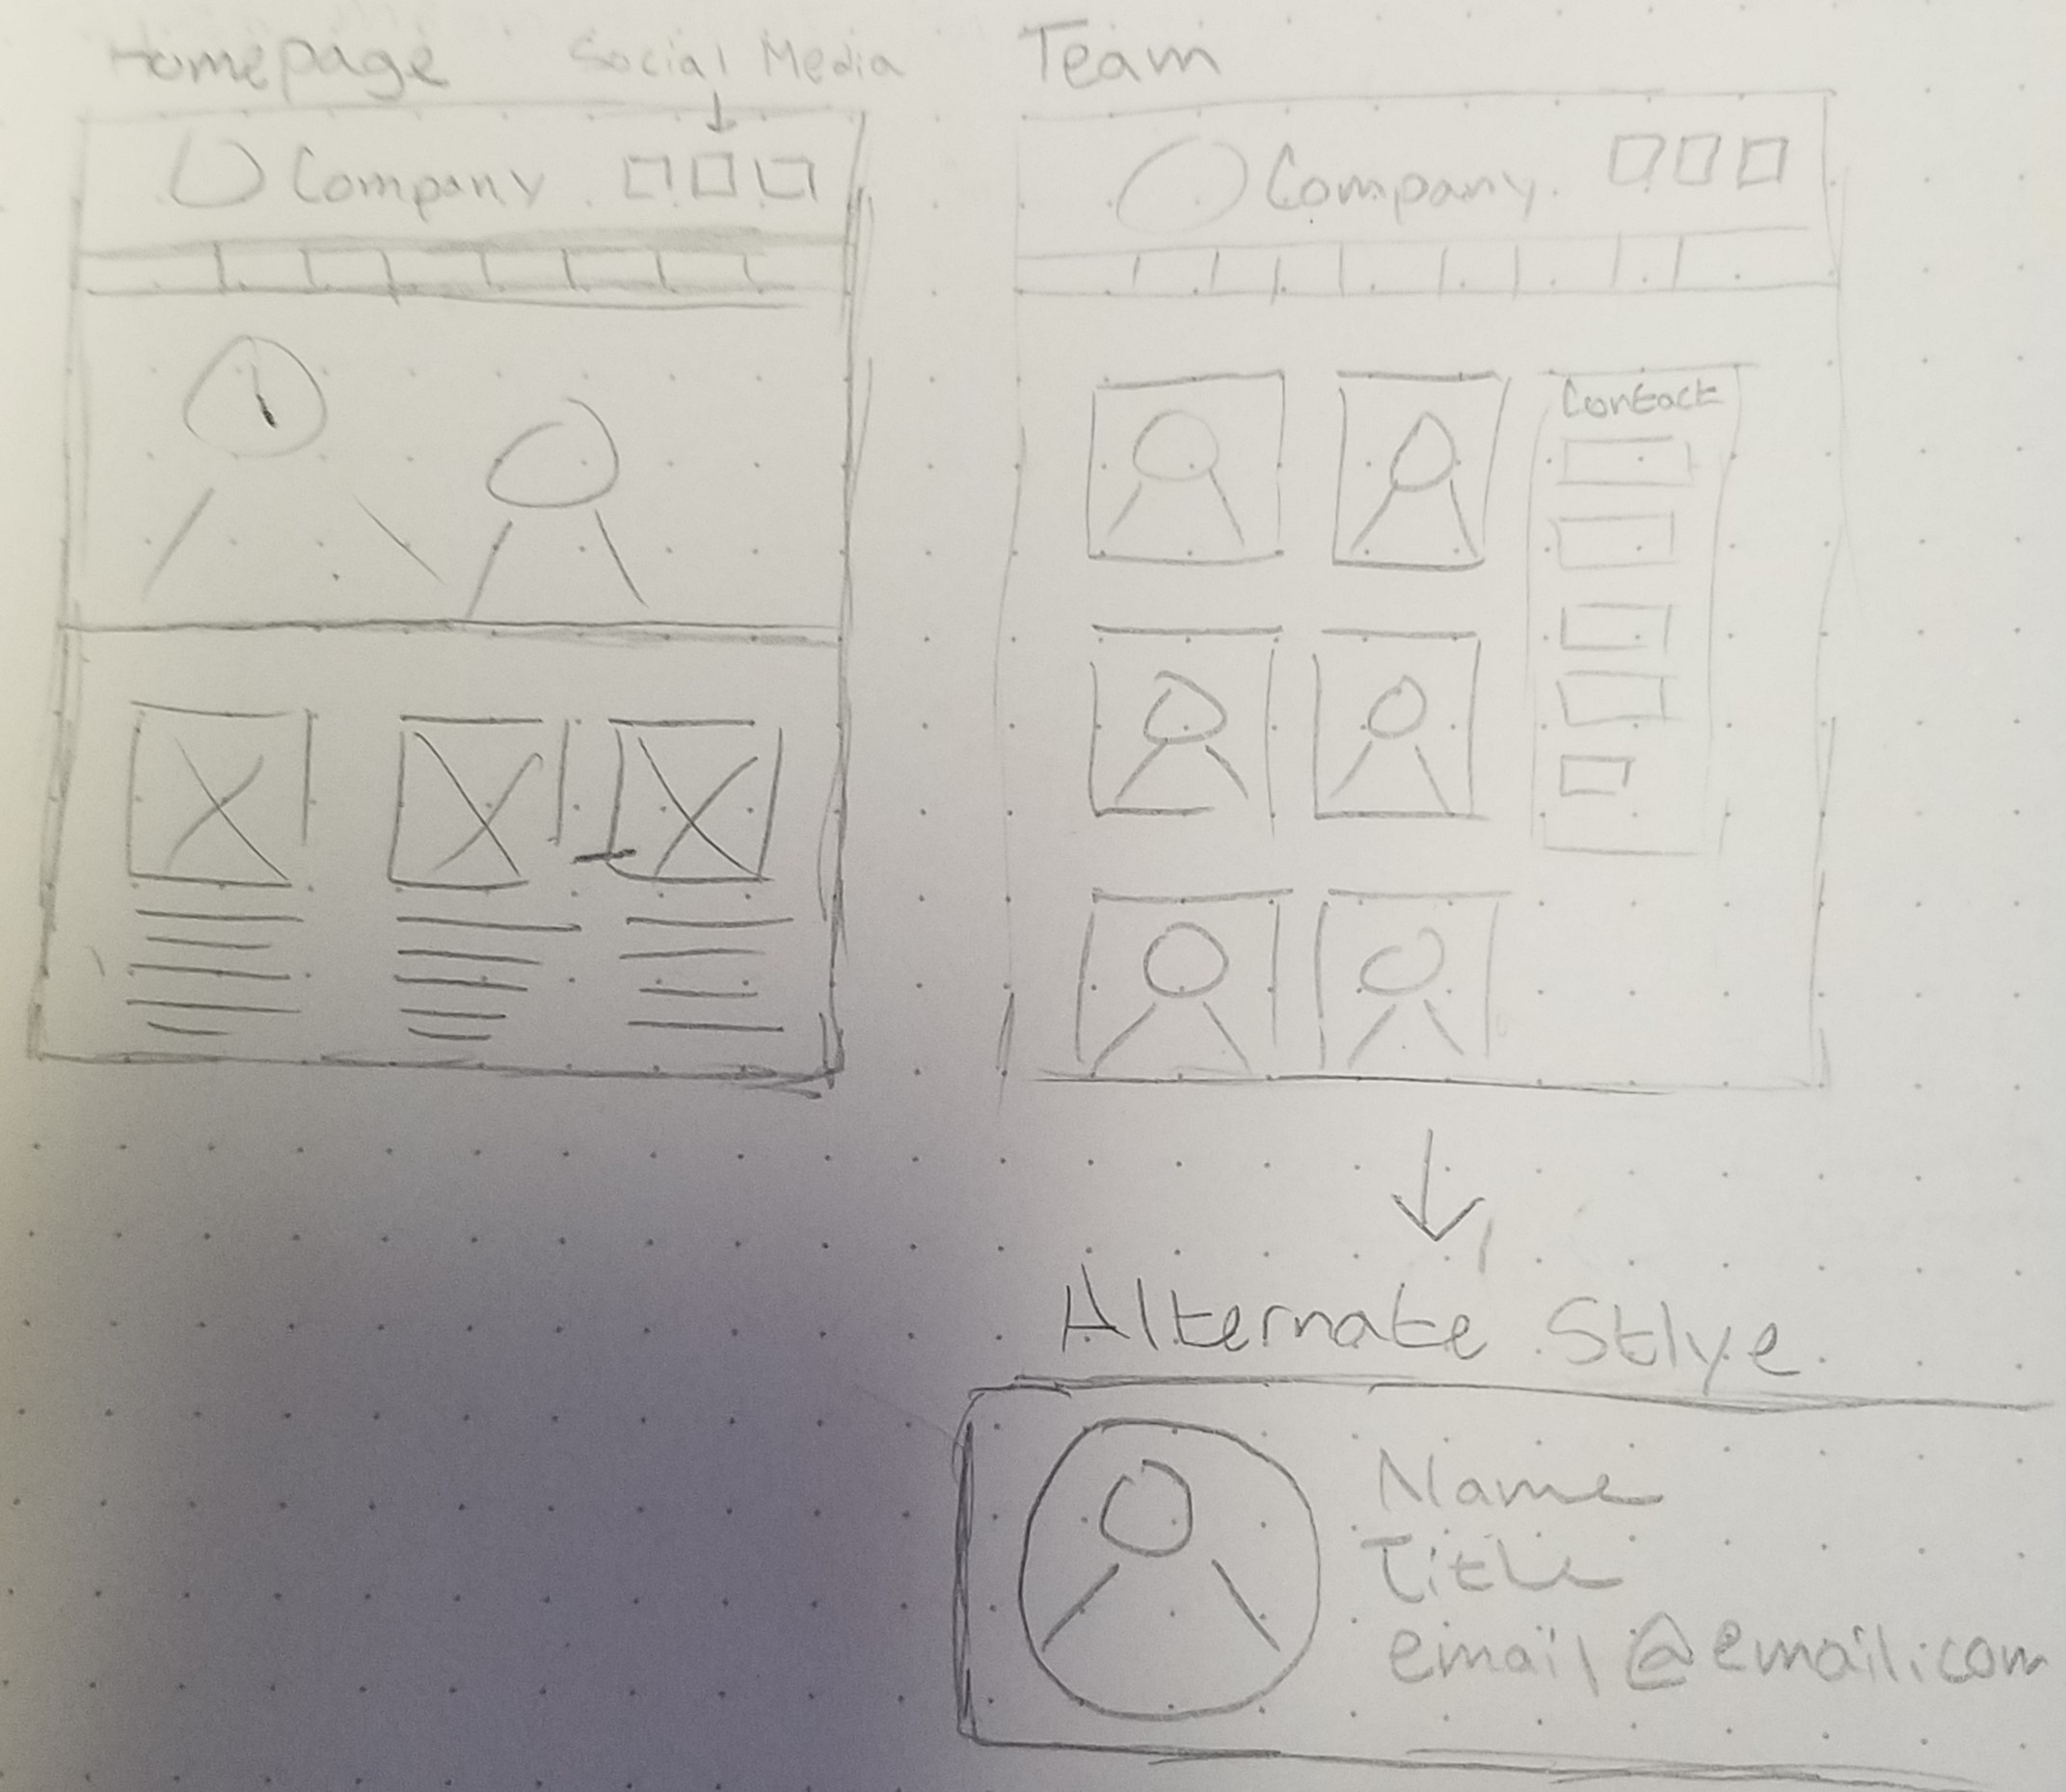 Homepage
Social Media
Team
Company
Company
Contact
Alternate Stlye
Name
Title
email@email.com